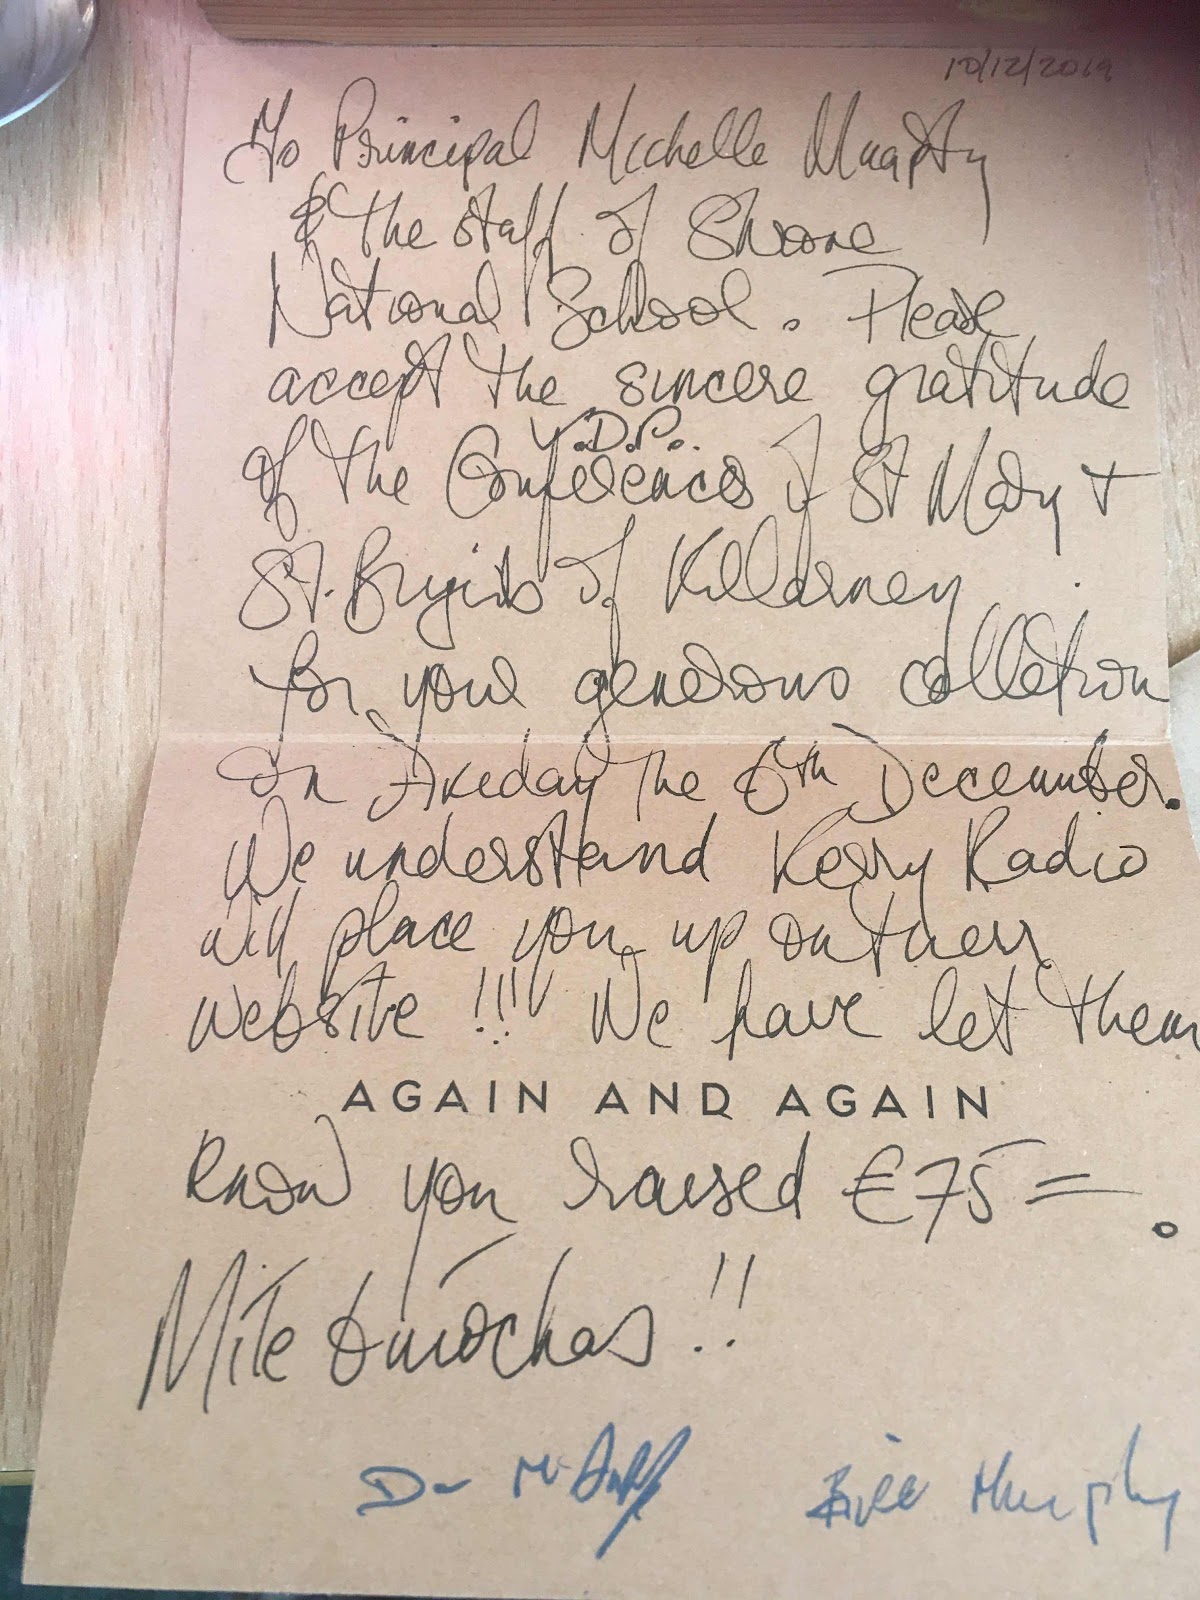 10/12/2019
To Principal Michelle Murphy
& the staff of Shrone
National School. Please
accept the sincere gratitude
V.D.P.
of the Conferences of St Mary +
St. Brigids of Killarney
for your generous colletion
on Friday the 6th December.
We understand Kerry Radio
will place you up on their
website !!! We have let them
AGAIN AND AGAIN
know you raised €75=.
Míle buíochas!!
Bill Murphy